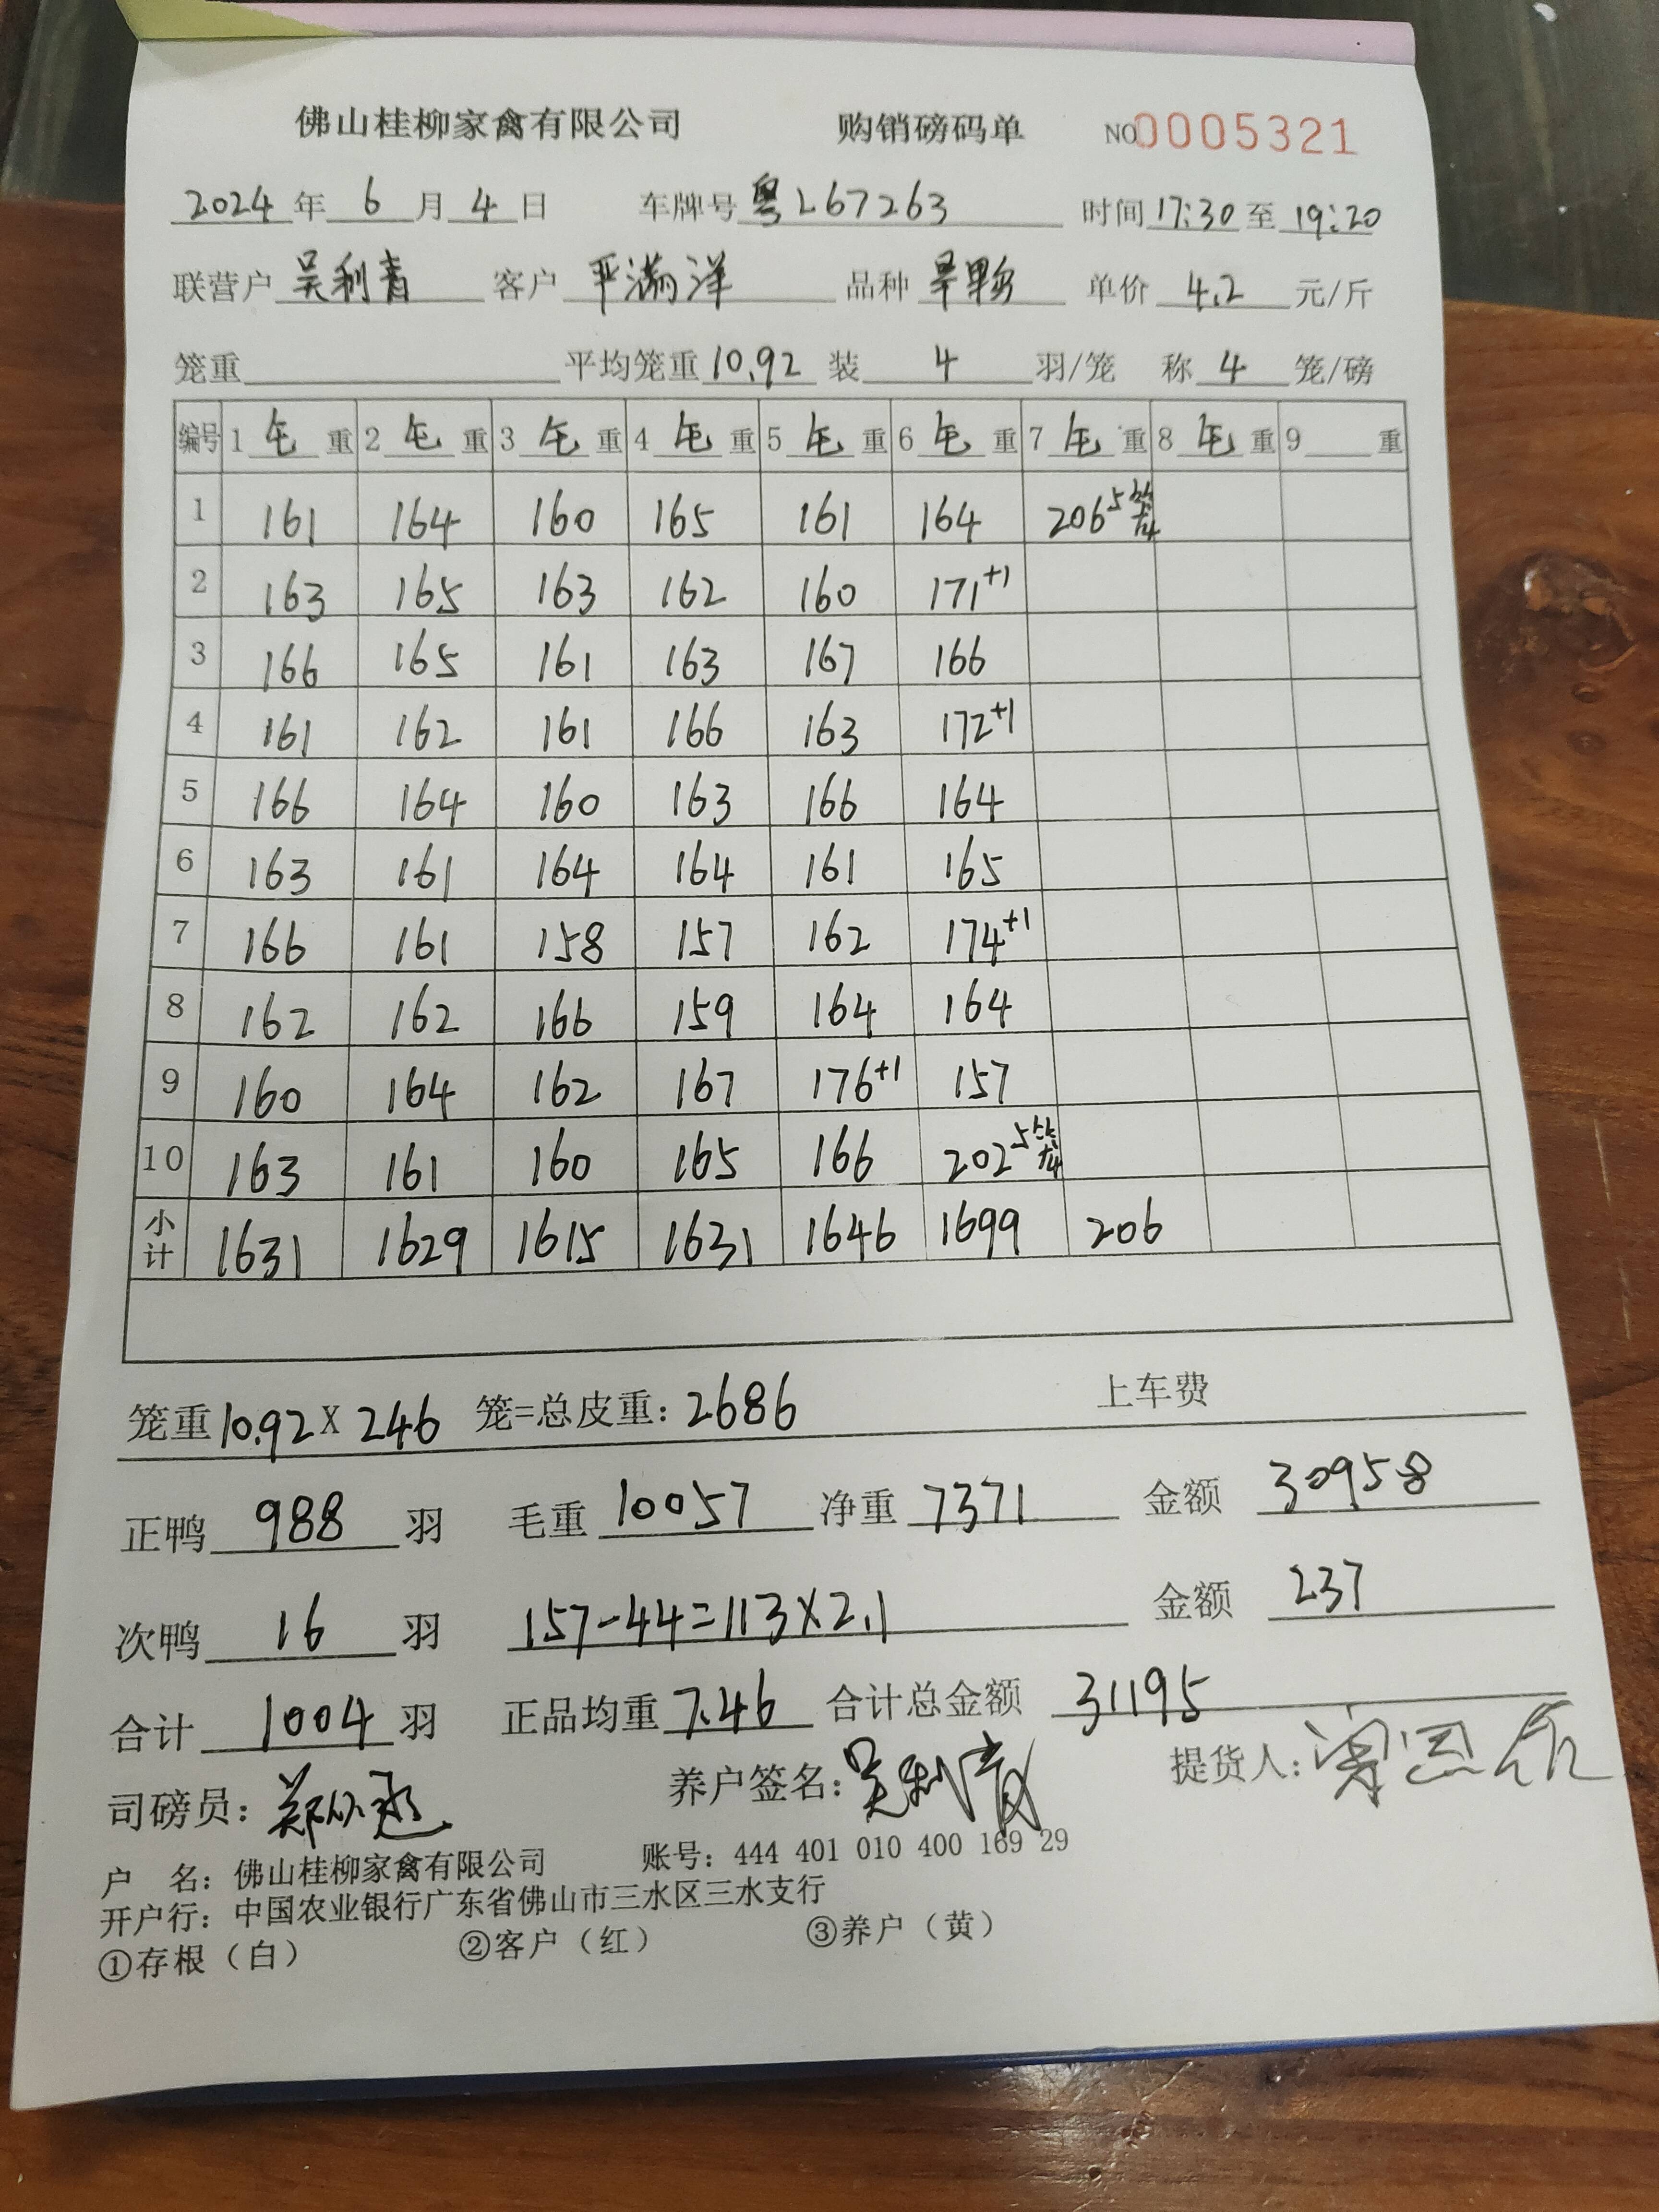 佛山桂柳家禽有限公司 购销磅码单 NO0005321
2024年6月4日 车牌号粤L67263 时间17:30至19:20
联营户吴利青 客户严满洋 品种 单价4.2元/斤
笼重 平均笼重10.92装4羽/笼 称4笼/磅
编号 1毛重 2毛重 3毛重 4毛重 5毛重 6毛重 7毛重 8毛重 9重
1 161 164 160 165 161 164 206 5笼
2 163 165 163 162 160 171+1
3 166 165 161 163 167 166
4 161 162 161 166 163 172+1
5 166 164 160 163 166 164
6 163 161 164 164 161 165
7 166 161 158 157 162 174+1
8 162 162 166 159 164 164
9 160 164 162 167 176+1 157
10 163 161 160 165 166 202 5笼
小计 1631 1629 1615 1631 1646 1699 206
笼重10.92X246 笼=总皮重：2686 上车费
正鸭988羽 毛重10057净重7371 金额30958
次鸭16羽 157-44=113X2.1 金额237
合计1004羽 正品均重7.46 合计总金额31195
司磅员： 养户签名：吴利青 提货人：
户 名：佛山桂柳家禽有限公司 账号：444 401 010 400 169 29
开户行：中国农业银行广东省佛山市三水区三水支行
①存根（白） ②客户（红） ③养户（黄）